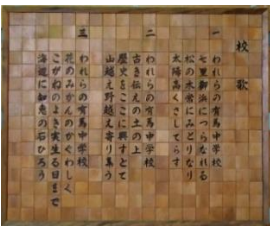 校歌
一
われらの有馬中学校
七里御浜につらなれる
松の木常にみどりなり
太陽高くさしてらす
二
われらの有馬中学校
古き伝えの土の上
歴史をここに興すとて
山越え野越え寄り集う
三
われらの有馬中学校
花のみかんのかぐわしく
こがねのまき実る日まで
海辺に知恵の石ひろう